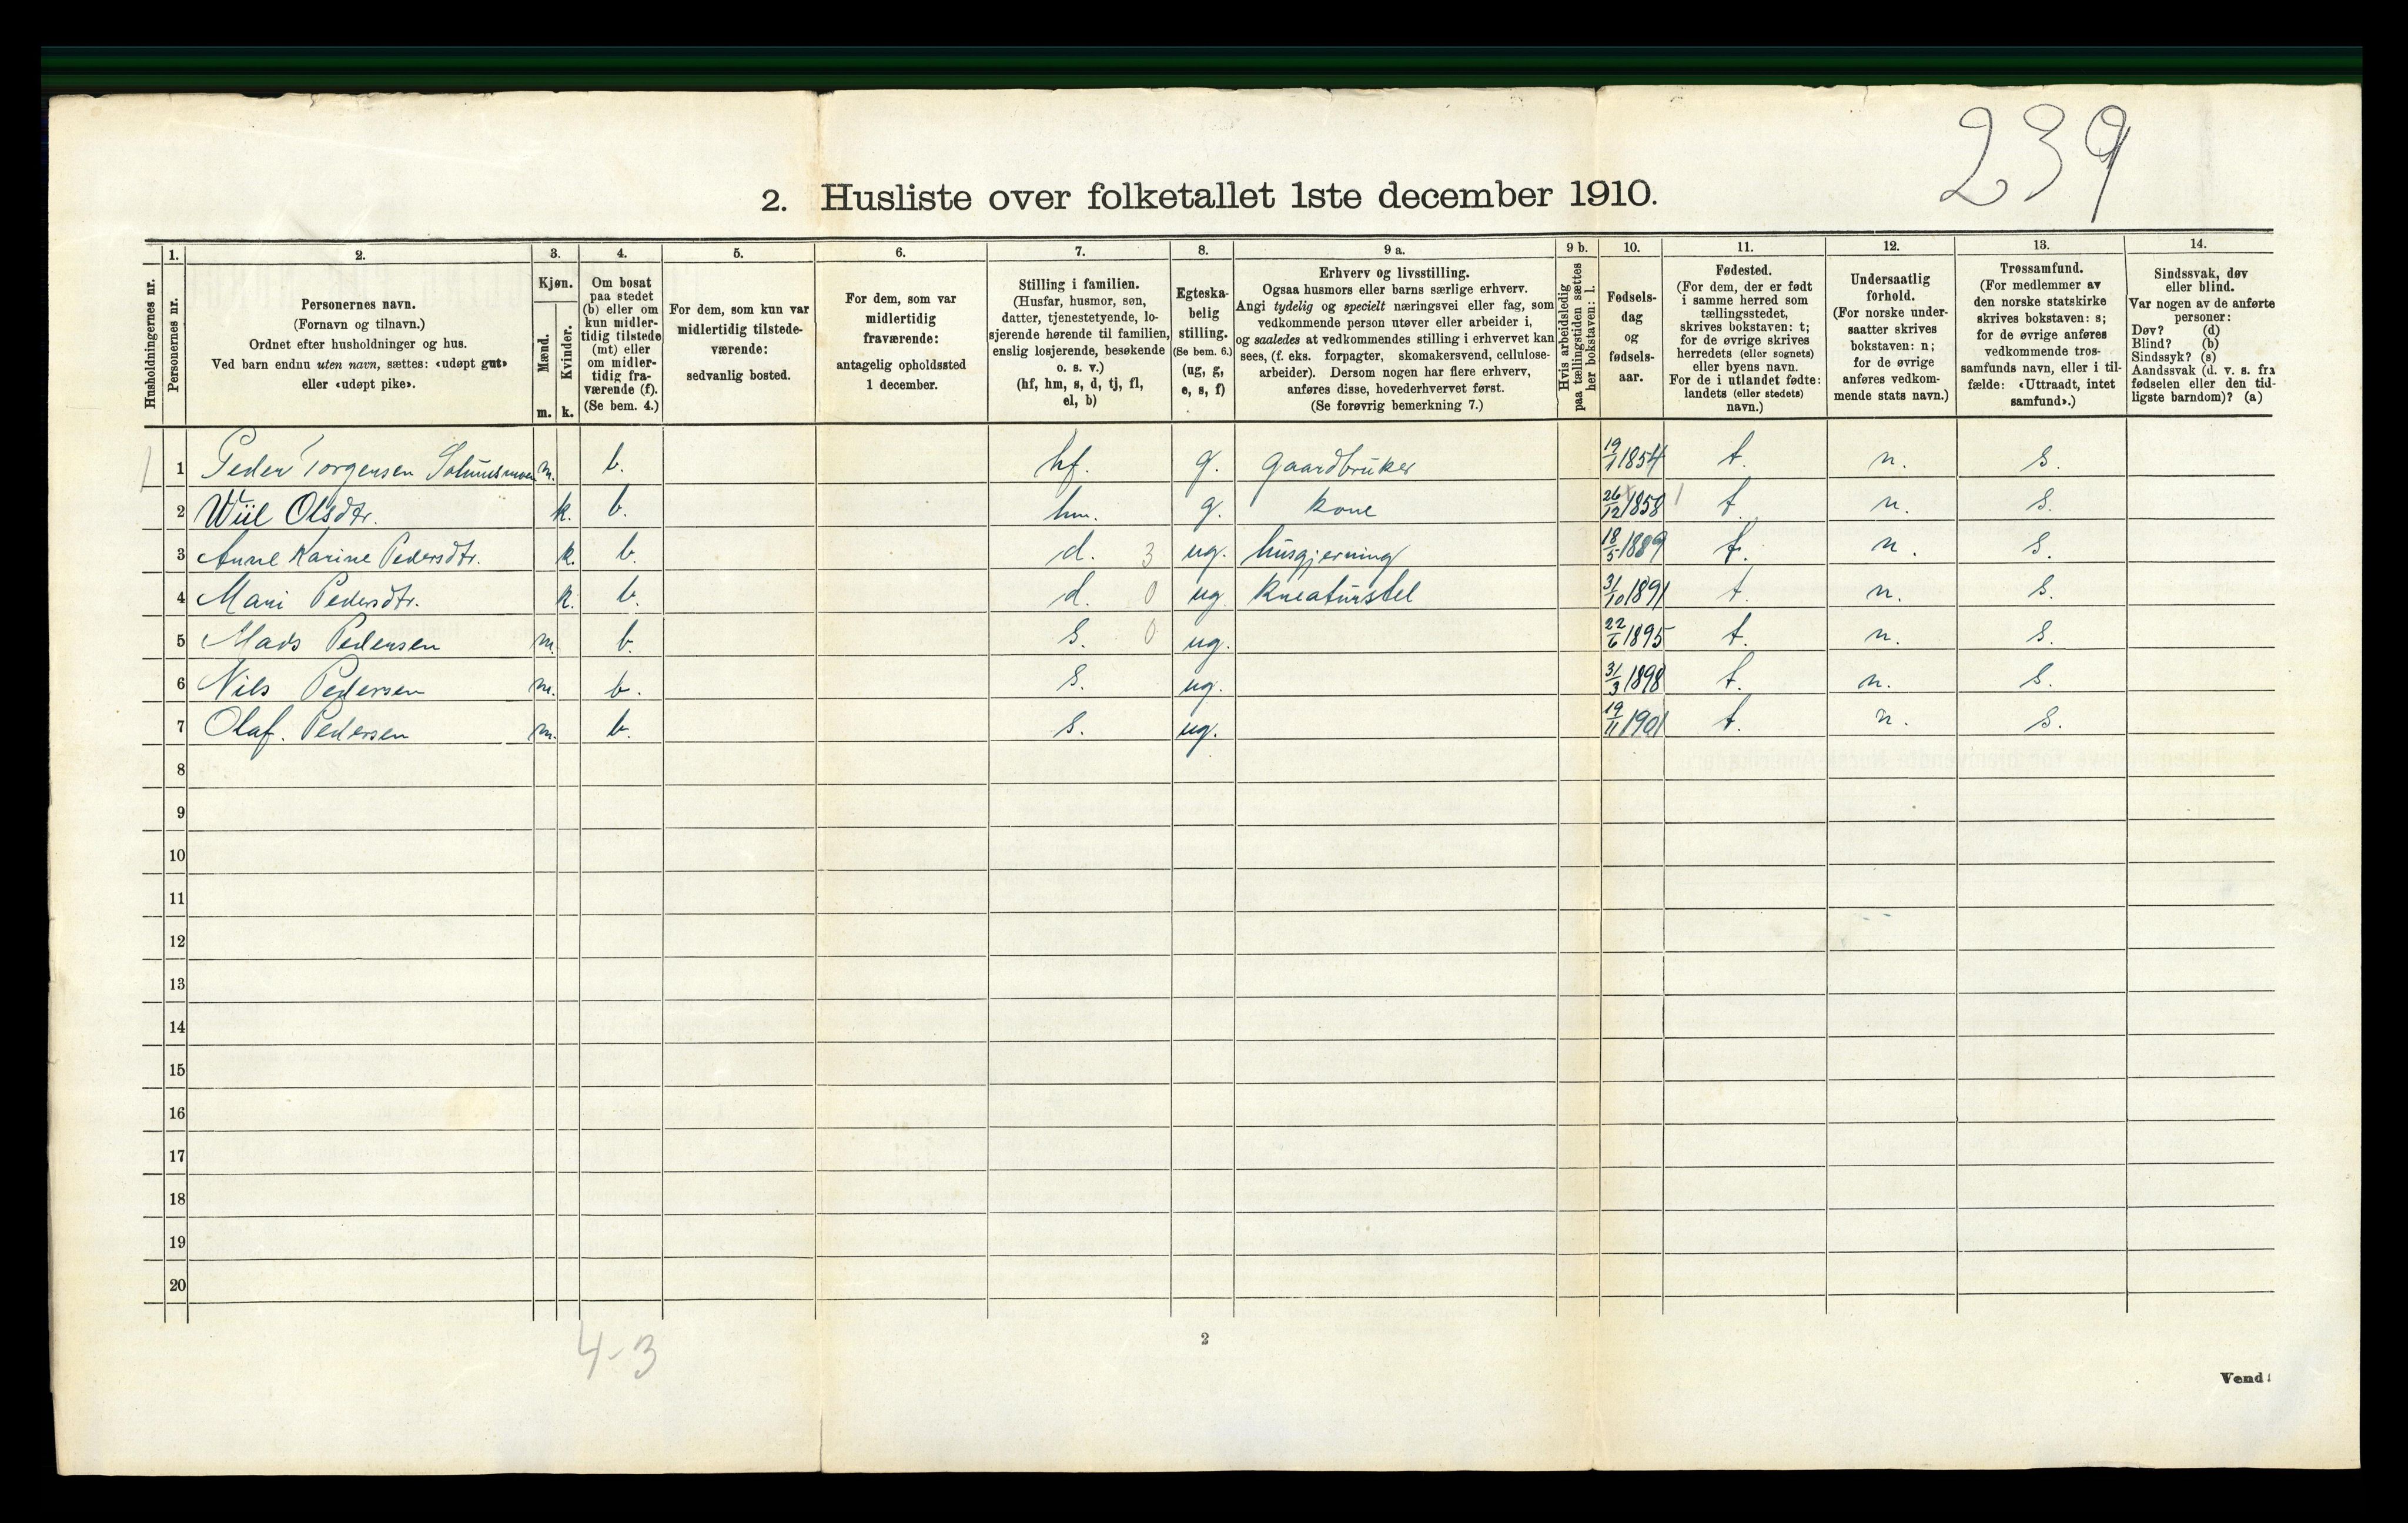 239
2. Husliste over folketallet 1ste december 1910.
1. 2. 3. 4. 5. 6. 7. 8. 9 a. 9 b. 10. 11. 12. 13. 14.
Husholdningernes nr.
Personernes nr.
Personernes navn.
(Fornavn og tilnavn.)
Ordnet efter husholdninger og hus.
Ved barn endnu uten navn, sættes: «udøpt gut»
eller «udøpt pike».
Kjøn.
Mænd.
Kvinder.
m. k.
Om bosat
paa stedet
(b) eller om
kun midler-
tidig tilstede
(mt) eller
om midler-
tidig fra-
værende (f).
(Se bem. 4.)
For dem, som kun var
midlertidig tilstede-
værende:
sedvanlig bosted.
For dem, som var
midlertidig
fraværende:
antagelig opholdssted
1 december.
Stilling i familien.
(Husfar, husmor, søn,
datter, tjenestetyende, lo-
sjerende hørende til familien,
enslig losjerende, besøkende
o. s. v.)
(hf, hm, s, d, tj, fl,
el, b)
Egteska-
belig
stilling.
(Se bem. 6.)
(ug, g,
e, s, f)
Erhverv og livsstilling.
Ogsaa husmors eller barns særlige erhverv.
Angi tydelig og specielt næringsvei eller fag, som
vedkommende person utøver eller arbeider i,
og saaledes at vedkommendes stilling i erhvervet kan
sees, (f. eks. forpagter, skomakersvend, cellulose-
arbeider). Dersom nogen har flere erhverv,
anføres disse, hovederhvervet først.
(Se forøvrig bemerkning 7.)
Hvis arbeidsledig
paa tællingstiden sættes
her bokstaven: l.
Fødsels-
dag
og
fødsels-
aar.
Fødested.
(For dem, der er født
i samme herred som
tællingsstedet,
skrives bokstaven: t;
for de øvrige skrives
herredets (eller sognets)
eller byens navn.
For de i utlandet fødte:
landets (eller stedets)
navn.)
Undersaatlig
forhold.
(For norske under-
saatter skrives
bokstaven: n;
for de øvrige
anføres vedkom-
mende stats navn.)
Trossamfund.
(For medlemmer av
den norske statskirke
skrives bokstaven: s;
for de øvrige anføres
vedkommende tros-
samfunds navn, eller i til-
fælde: «Uttraadt, intet
samfund».)
Sindssvak, døv
eller blind.
Var nogen av de anførte
personer:
Døv? (d)
Blind? (b)
Sindssyk? (s)
Aandssvak (d. v. s. fra
fødselen eller den tid-
ligste barndom)? (a)
1 1 Peder Torgersen m. b. hf. g. gaardbruker 19/1 1854 t. n. s.
2 Wiil Olsdtr. k. b. hm. g. kone 26/12 1858 t. n. s.
3 Anne Karine Pedersdtr. k. b. d. 3 ug. husgjerning 18/5 1889 t. n. s.
4 Mari Pedersdtr. k. b. d. 0 ug. kreaturstel 31/10 1891 t. n. s.
5 Mads Pedersen m. b. s. 0 ug. 22/6 1895 t. n. s.
6 Nils Pedersen m. b. s. ug. 31/3 1898 t. n. s.
7 Olaf. Pedersen m. b. s. ug. 19/11 1901 t. n. s.
8
9
10
11
12
13
14
15
16
17
18
19
20
4-3
2
Vend!